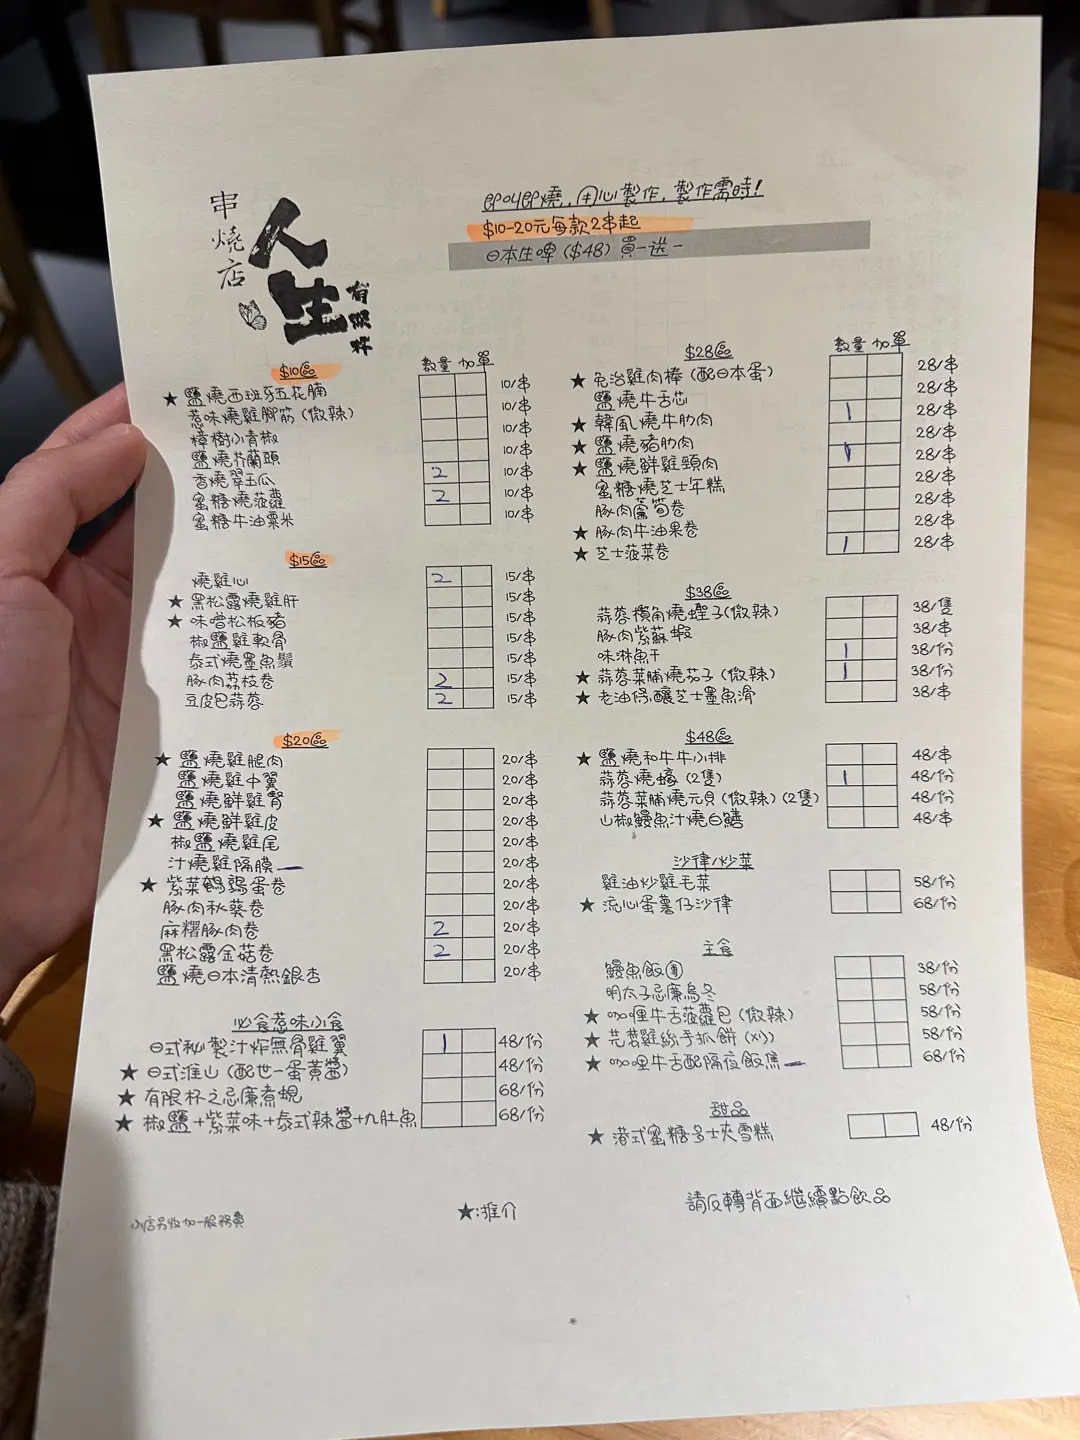 串燒店
人生
有限杯
即叫即燒，用心製作，製作需時！
$10-20元每款2串起
日本生啤($48)買一送一
$10區 數量 加單
★ 鹽燒西班牙五花腩 10/串
惹味燒雞腳筋(微辣) 10/串
樟樹小青椒 10/串
鹽燒芥蘭頭 10/串
香燒翠玉瓜 2 10/串
蜜糖燒菠蘿 2 10/串
蜜糖牛油粟米 10/串
$15區
燒雞心 2 15/串
★ 黑松露燒雞肝 15/串
★ 味噌松板豬 15/串
椒鹽雞軟骨 15/串
泰式燒墨魚鬚 15/串
豚肉荔枝卷 2 15/串
豆皮包蒜蓉 2 15/串
$20區
★ 鹽燒雞腿肉 20/串
鹽燒雞中翼 20/串
鹽燒鮮雞腎 20/串
★ 鹽燒鮮雞皮 20/串
椒鹽燒雞尾 20/串
汁燒雞隔膜 20/串
★ 紫菜鵪鶉蛋卷 20/串
豚肉秋葵卷 20/串
麻糬豚肉卷 2 20/串
黑松露金菇卷 2 20/串
鹽燒日本清熱銀杏 20/串
必食惹味小食
日式秘製汁炸無骨雞翼 1 48/份
★ 日式淮山(配世一蛋黃醬) 48/份
★ 有限杯之忌廉煮蜆 68/份
★ 椒鹽+紫菜味+泰式辣醬+九肚魚 68/份
$28區 數量 加單
★ 免治雞肉棒(配日本蛋) 28/串
鹽燒牛舌芯 28/串
★ 韓風燒牛肋肉 1 28/串
★ 鹽燒豬肋肉 28/串
★ 鹽燒鮮雞頸肉 1 28/串
蜜糖燒芝士年糕 28/串
豚肉蘆筍卷 28/串
★ 豚肉牛油果卷 28/串
★ 芝士菠菜卷 1 28/串
$38區
蒜蓉欖角燒蟶子(微辣) 38/隻
豚肉紫蘇蝦 38/串
味淋魚干 1 38/份
★ 蒜蓉菜脯燒茄子(微辣) 1 38/份
★ 老油條釀芝士墨魚滑 38/串
$48區
★ 鹽燒和牛牛小排 48/串
蒜蓉燒蠔(2隻) 1 48/份
蒜蓉菜脯燒元貝(微辣)(2隻) 48/份
山椒鰻魚汁燒白鱔 48/串
沙律/炒菜
雞油炒雞毛菜 58/份
★ 流心蛋薯仔沙律 68/份
主食
鰻魚飯團 38/份
明太子忌廉烏冬 58/份
★ 咖哩牛舌菠蘿包(微辣) 58/份
★ 芫荽雞絲手抓餅(凍) 58/份
★ 咖哩牛舌配隔夜飯焦 68/份
甜品
★ 港式蜜糖多士夾雪糕 48/份
小店另收加一服務費
★:推介
請反轉背面繼續點飲品